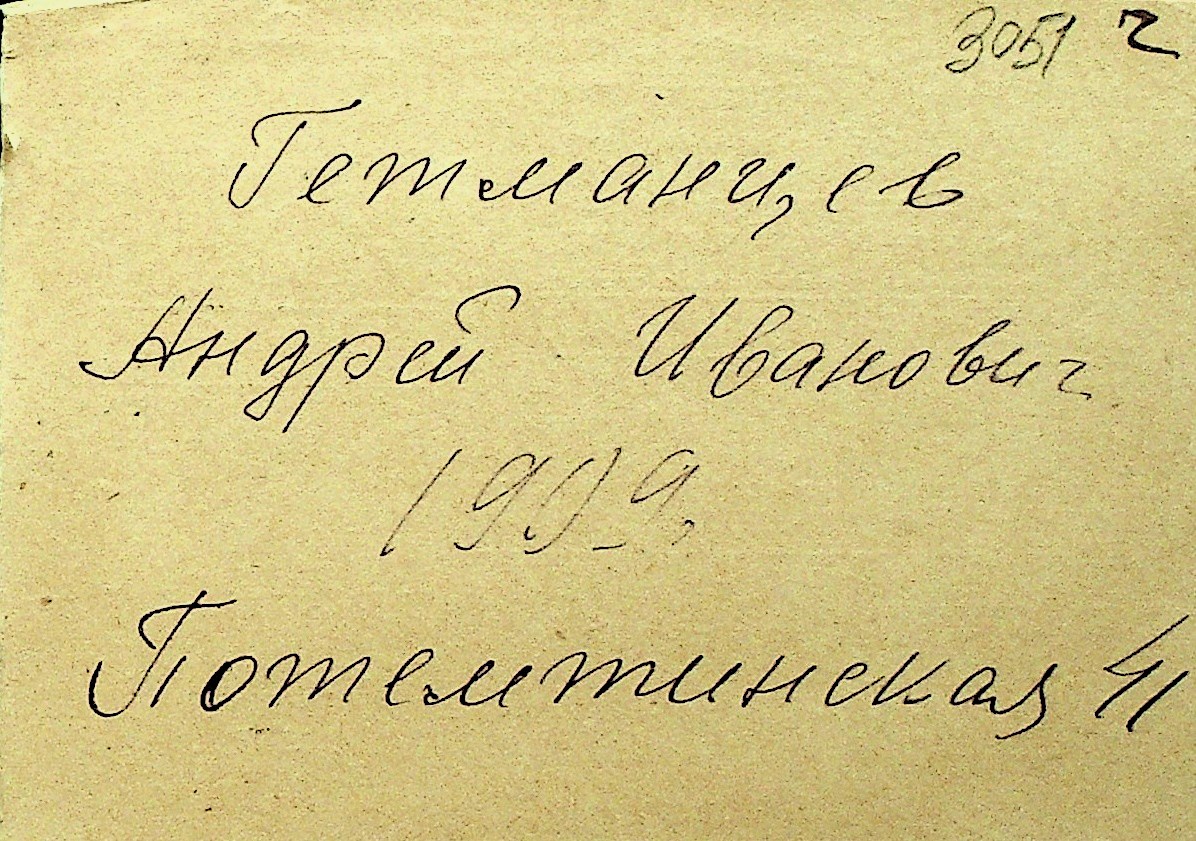 3051 ч
Гетманцев
Андрей Иванович
1909,
Потемтинская 41